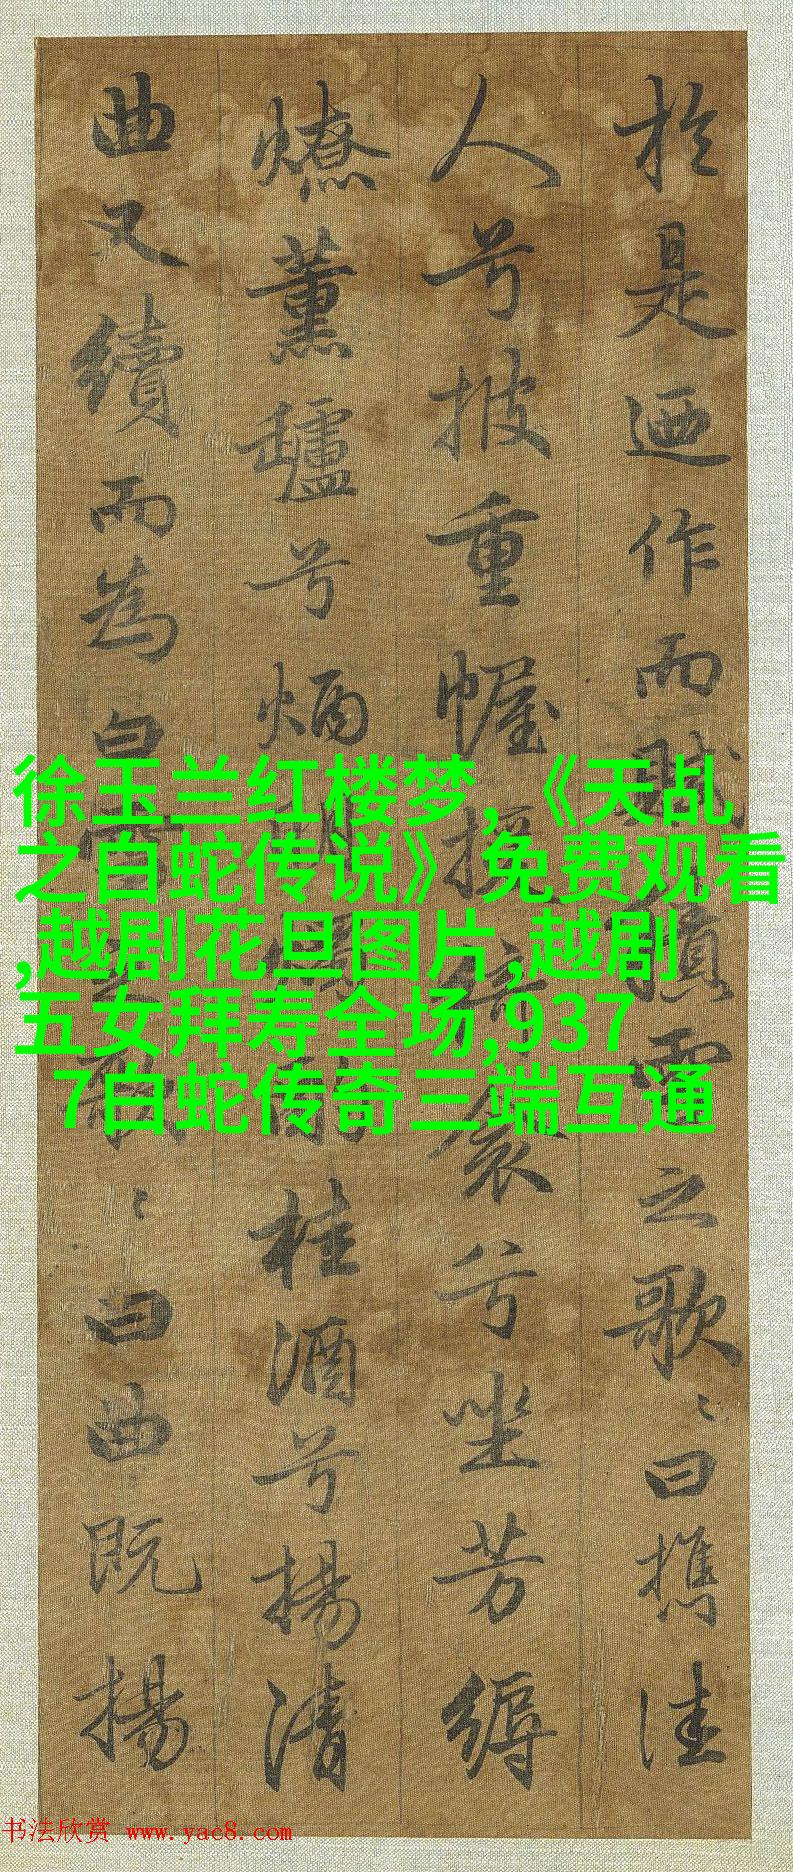 於是迺作而賦積雪之歌〻曰攜佳
人兮披重幄援綺衾兮坐芳縟
燎薰罏兮焫明燭酌桂酒兮揚清
曲又續而為白雪之歌〻曰曲既揚
徐玉兰红楼梦,《天乩
之白蛇传说》 免费观看
,越剧花旦图片,越剧
五女拜寿全场,937
7白蛇传奇三端互通
书法欣赏 www.yac8.com